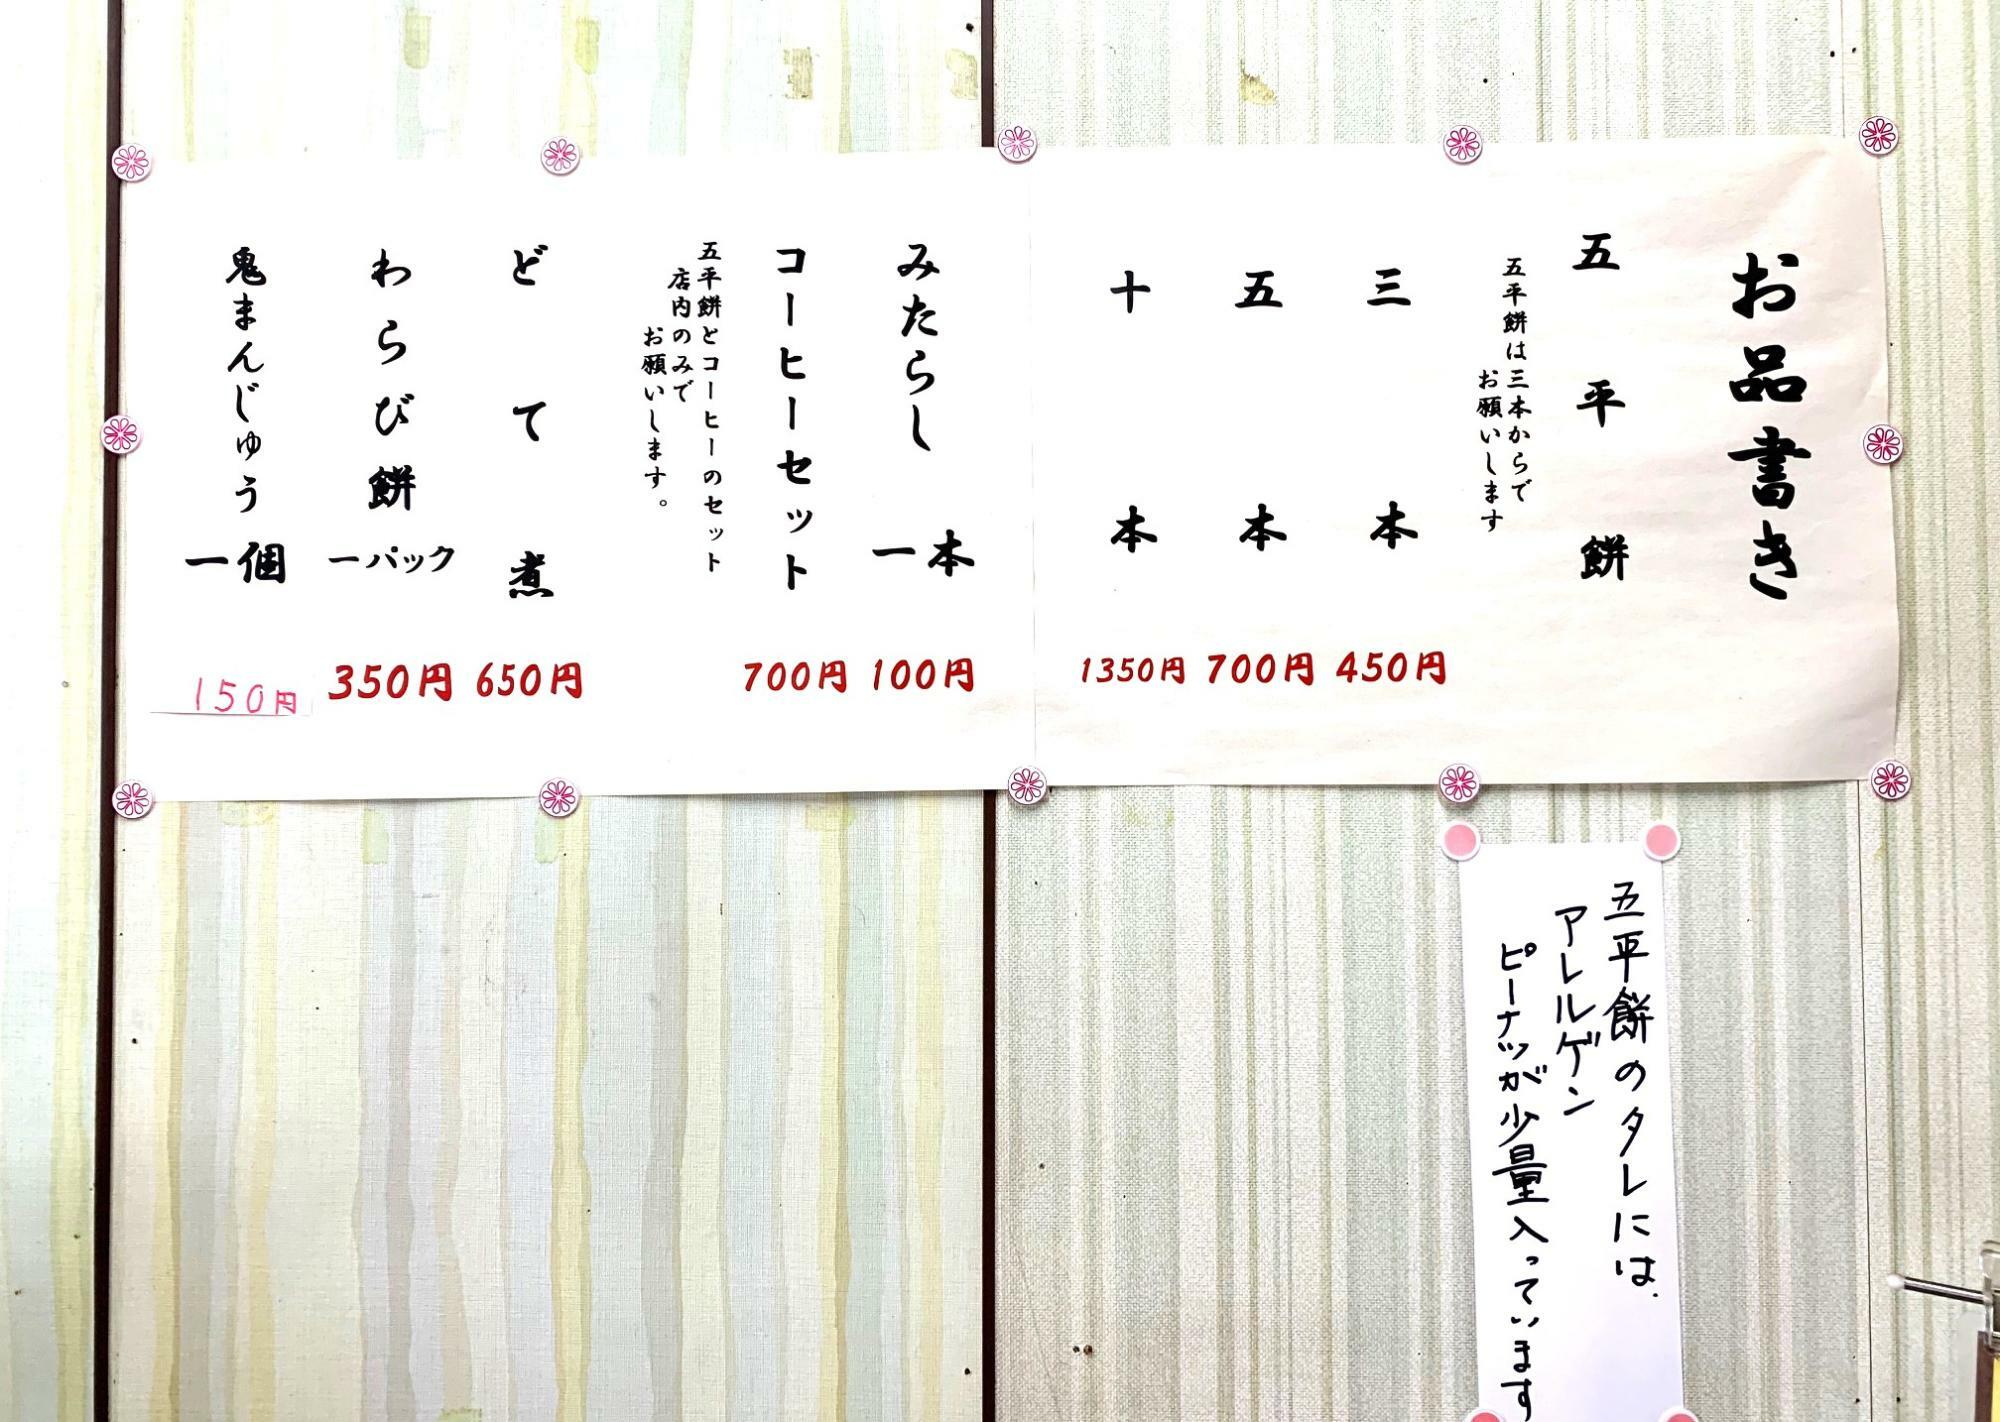 お品書き
五平餅
五平餅は三本からで
お願いします
三本
450円
五本
700円
十本
1350円
みたらし
一本
100円
コーヒーセット
700円
五平餅とコーヒーのセット
店内のみで
お願いします。
どて煮
650円
わらび餅
一パック
350円
鬼まんじゅう
一個
150円
五平餅のタレには、
アレルゲン
ピーナッツが少量入っています